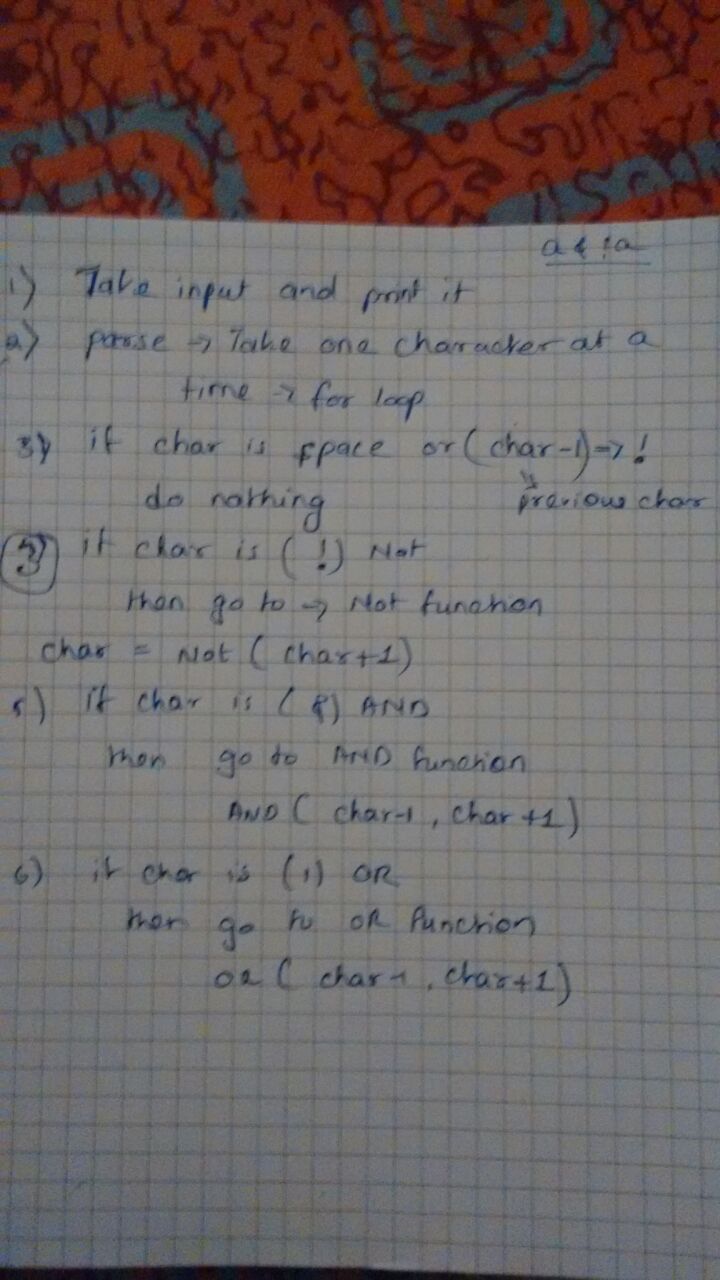 a & !a
1) Take input and print it
2) parse → Take one character at a
time → for loop
3) if char is space or (char-1) => !
do nothing previous char
3) if char is (!) Not
then go to → Not function
char = Not ( char+1)
5) if char is (&) AND
then go to AND function
AND ( char-1 , char +1)
6) if char is (|) OR
then go to OR function
OR ( char-1 , char+1)